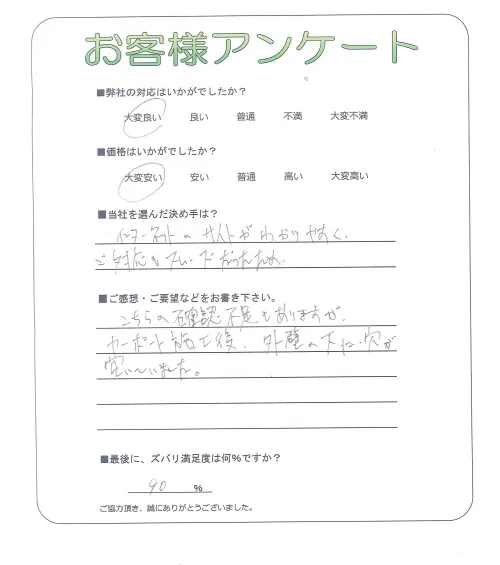 お客様アンケート
■弊社の対応はいかがでしたか？
大変良い 良い 普通 不満 大変不満
■価格はいかがでしたか？
大変安い 安い 普通 高い 大変高い
■当社を選んだ決め手は？
インターネットのサイトがわかりやすく、
ご対応もスムーズだったため
■ご感想・ご要望などをお書き下さい。
こちらの確認不足もありますが、
カーポート施工後、外壁の下に穴が
空いていました。
■最後に、ズバリ満足度は何%ですか？
90 %
ご協力頂き、誠にありがとうございました。